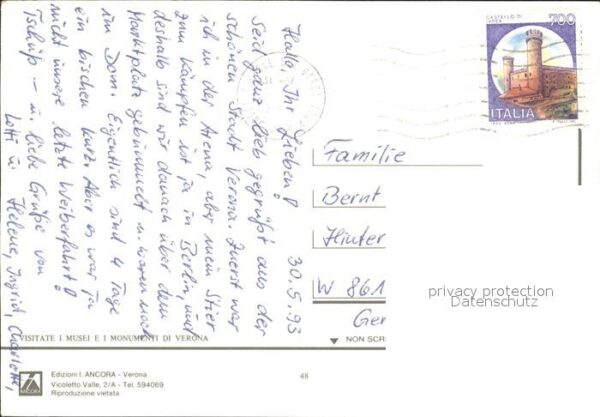 Hallo, Ihr Lieben! 30.5.93
Seid ganz lieb gegrüßt aus der
schönen Stadt Verona. Zuerst war
ich in der Arena, aber mein Stier
zum Kämpfen ist ja in Berlin, und
deshalb sind wir danach über den
Marktplatz gebummelt u. waren noch
im Dom. Eigentlich sind 4 Tage
ein bischen kurz. Aber es war ja
nicht unsere letzte Weiberfahrt!
Tschüß – in liebe Grüße von
Helene, Ingrid, Charlotte,
CASTELLO DI
IVREA
700
ITALIA
Familie
Bernt
Hinter
W 861
Ger
privacy protection
Datenschutz
VISITATE I MUSEI E I MONUMENTI DI VERONA
NON SCR
ANCORA
Edizioni l. ANCORA - Verona
Vicoletto Valle, 2/A - Tel. 594069
Riproduzione vietata
48